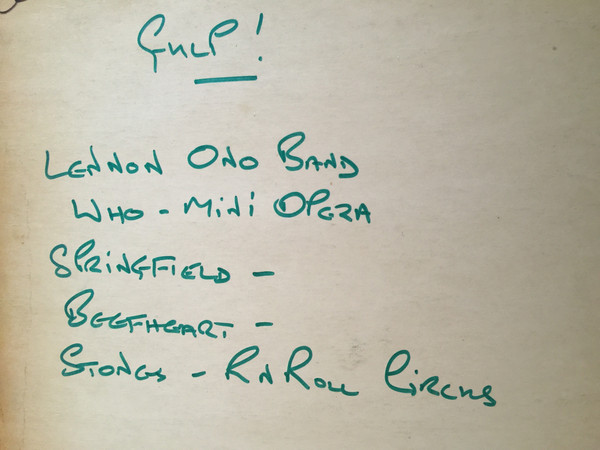 GULP!
LENNON ONO BAND
WHO - MINI OPERA
SPRINGFIELD -
BEEFHEART -
STONES - R N ROLL CIRCUS